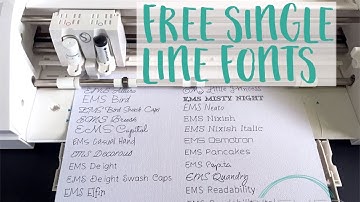 FREE SINGLE
LINE FONTS
EMS Allure
EMS Bird
EMS Bird Swash Caps
EMS Brush
EMS Capitol
EMS Casual Hand
EMS Decorous
EMS Delight
EMS Delight Swash Caps
EMS Elfin
EMS MISTY NIGHT
EMS Nixish
EMS Nixish Italic
EMS Osmotron
EMS Pancakes
EMS Pepita
EMS Quandry
EMS Readability